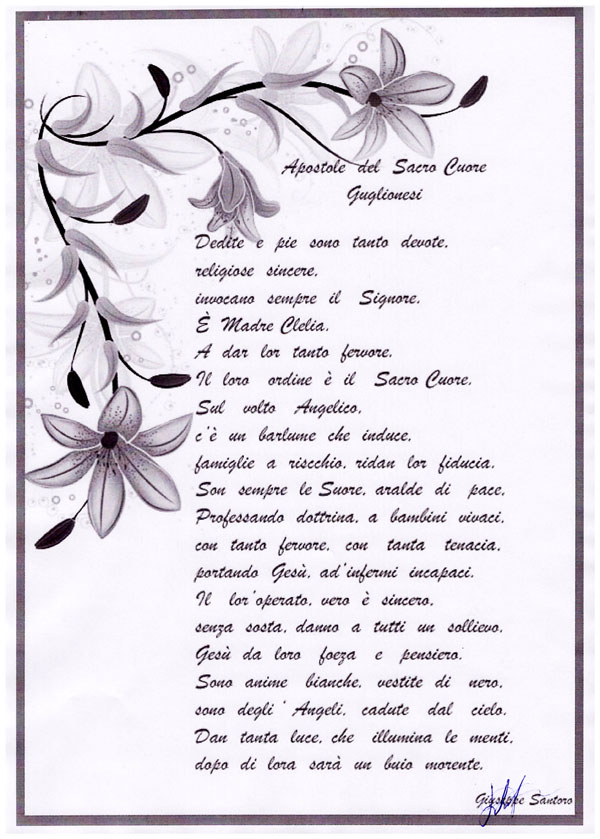 Apostole del Sacro Cuore
Guglionesi
Dedite e pie sono tanto devote,
religiose sincere,
invocano sempre il Signore.
È Madre Clelia.
A dar lor tanto fervore.
Il loro ordine è il Sacro Cuore.
Sul volto Angelico,
c'è un barlume che induce,
famiglie a riscchio, ridan lor fiducia.
Son sempre le Suore, aralde di pace,
Professando dottrina, a bambini vivaci,
con tanto fervore, con tanta tenacia,
portando Gesù, ad'infermi incapaci.
Il lor'operato, vero è sincero,
senza sosta, danno a tutti un sollievo,
Gesù da loro foeza e pensiero.
Sono anime bianche, vestite di nero,
sono degli ' Angeli, cadute dal cielo.
Dan tanta luce, che illumina le menti,
dopo di lora sarà un buio morente.
Giuseppe Santoro